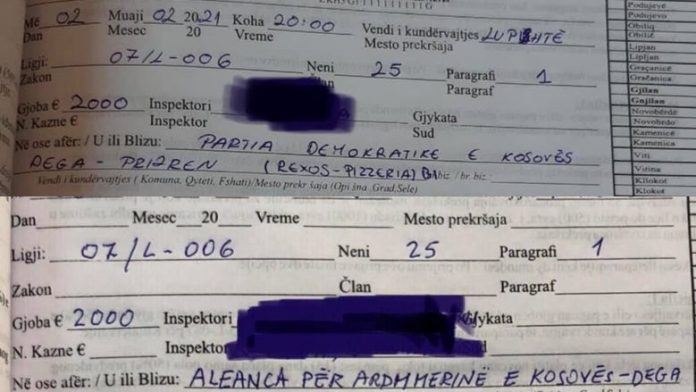 Më 02 Muaji 02 20 21 Koha 20:00 Vendi i kundërvajtjes LUPISHTË
Dan Mesec 20 Vreme Mesto prekršaja
Ligji: 07/L-006 Neni 25 Paragrafi 1
Zakon Član Paragraf
Gjoba € 2000 Inspektori Gjykata
N. Kazne € Inspektor Sud
Në ose afër: / U ili Blizu: PARTIA DEMOKRATIKE E KOSOVËS
DEGA - PRIZREN (REXOS-PIZZERIA) biz / br. biz
Vendi i kundërvajtjes ( Komuna, Qyteti, Fshati)/Mesto prekršaja (Opština, Grad, Sele)
Podujevë
Podujevo
Obiliq
Obilić
Lipjan
Lipljan
Graçanicë
Gračanica
Gjilan
Gnjilan
Novobërdë
Novobrdo
Kamenicë
Kamenica
Viti
Vitina
Kllokot
Klokot
Dan Mesec 20 Vreme Mesto prekršaja
Ligji: 07/L-006 Neni 25 Paragrafi 1
Zakon Član Paragraf
Gjoba € 2000 Inspektori Gjykata
N. Kazne € Inspektor Sud
Në ose afër: / U ili Blizu: ALEANCA PËR ARDHMERINË E KOSOVËS-DEGA